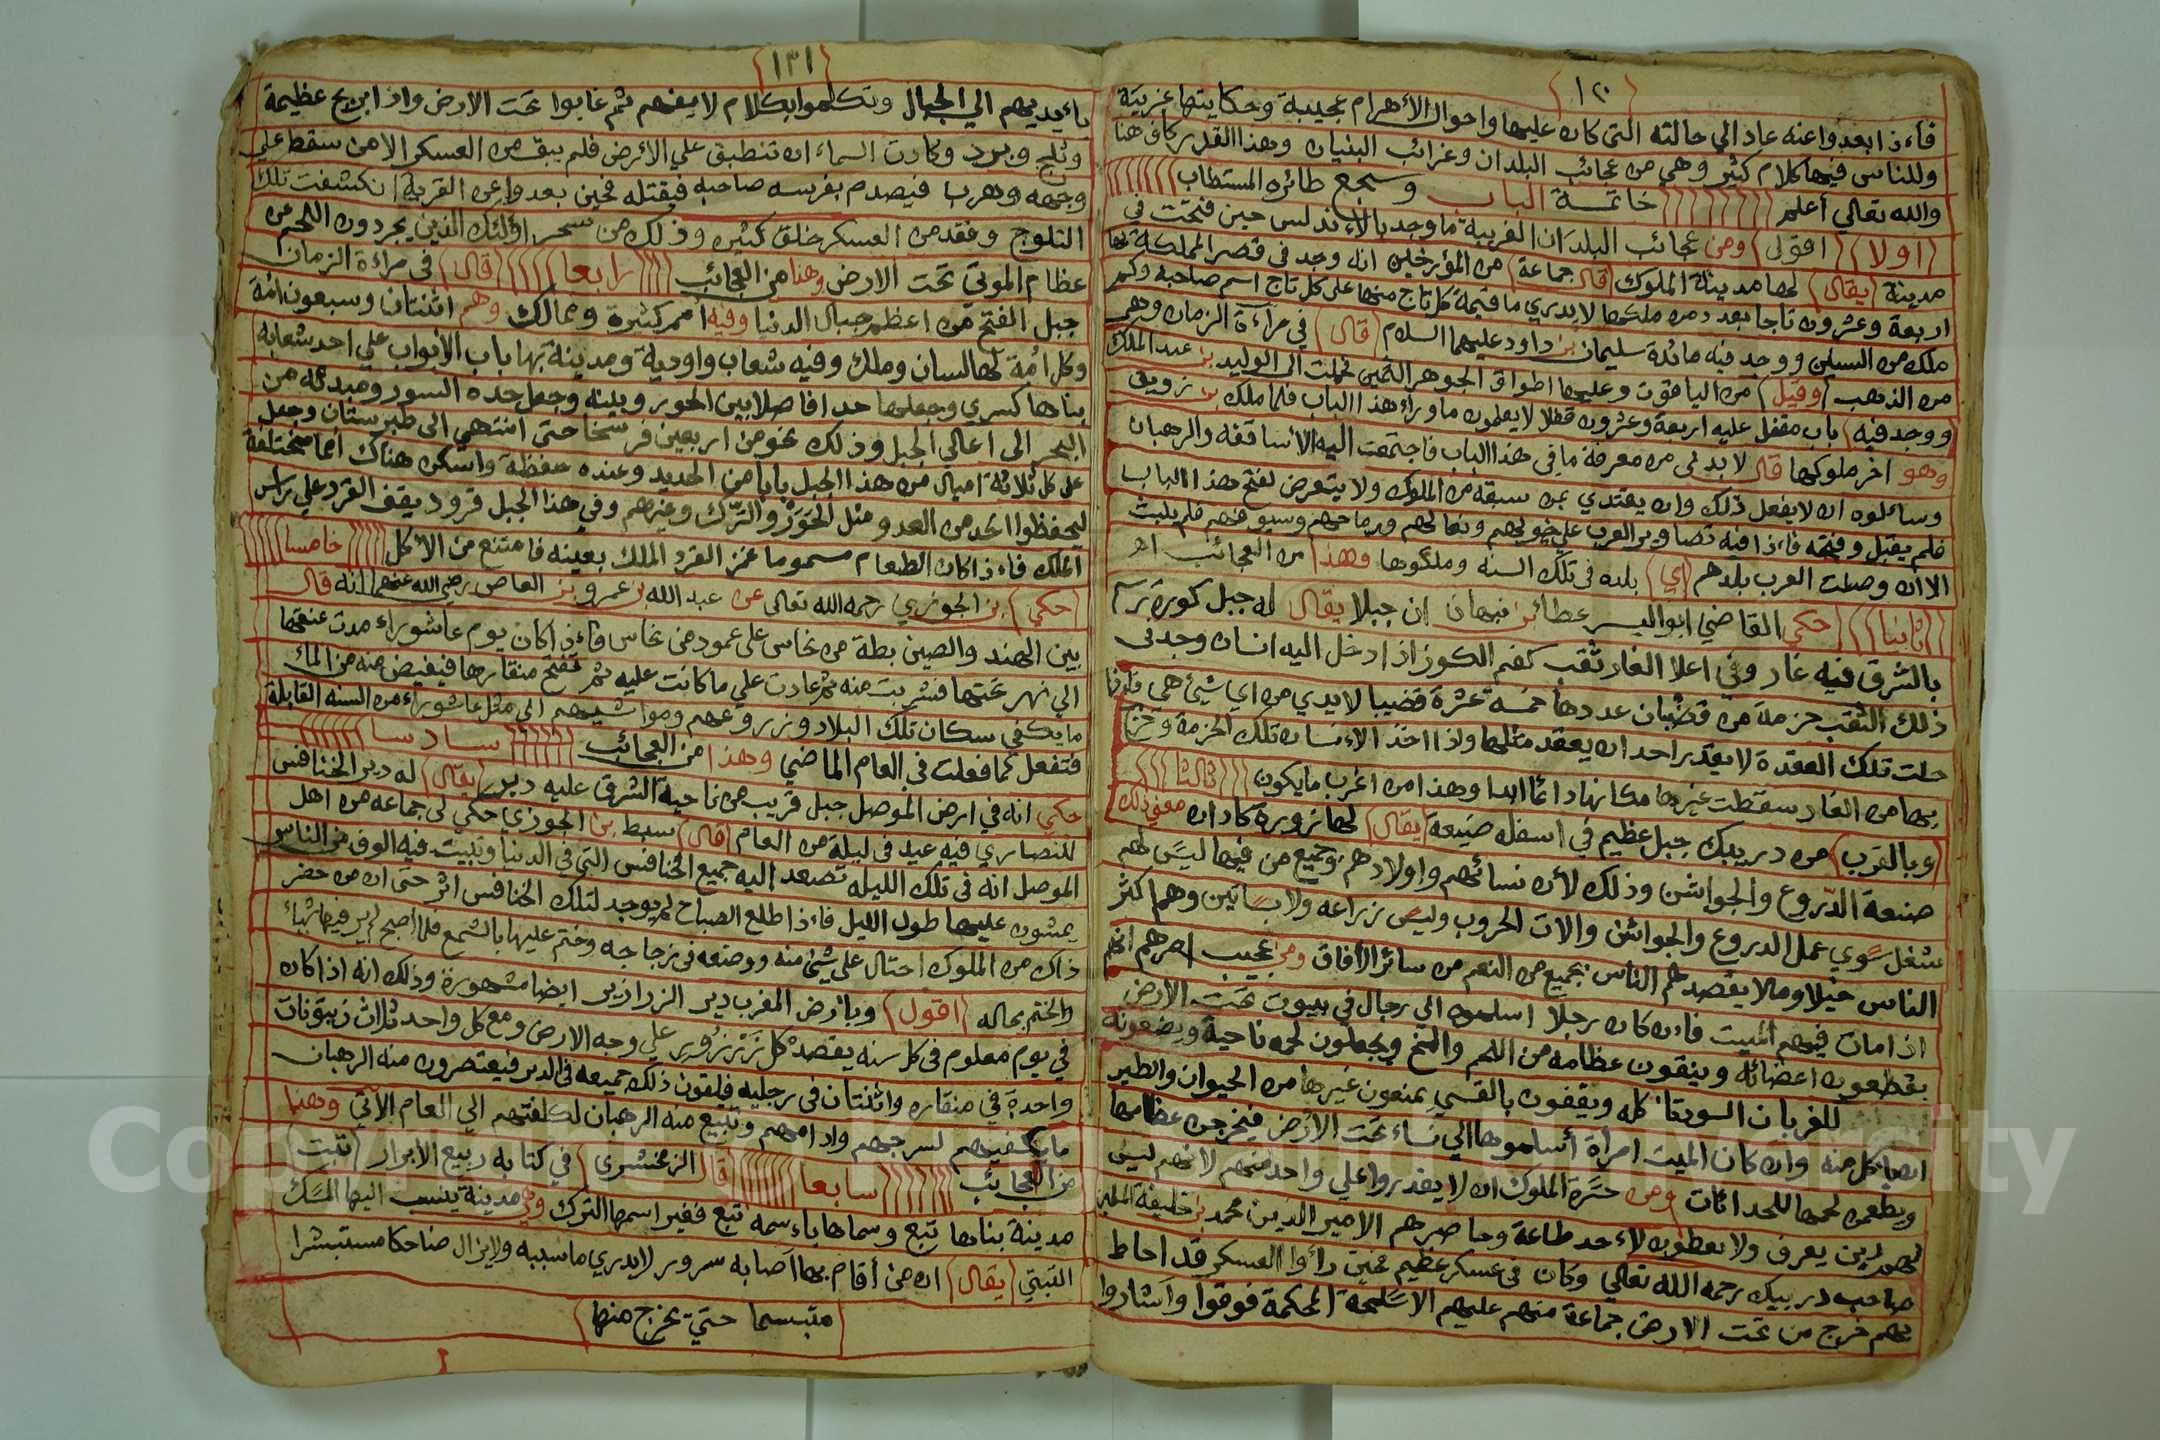 ١٢٠
فاءذا ابعدوا عنه عاد الي حالته التي كان عليها واحوال الأهرام عجيبة وحكايتها غريبة
وللناس فيها كلام كثير وهي من عجائب البلدان وغرائب البنيان وهذا القدر كاف هنا
والله تعالي أعلم خاتمة الباب وسجع طائره المستطاب
اولا اقول ومن عجائب البلدان الغريبة ما وجد بالاءندلس حين فتحت في
مدينة يقال لها مدينة الملوك قال جماعة من المؤرخين انه وجد في قصر المملكة بها
اربعة وعشرون تاجا بعدد من ملكها لا يدري ما قيمة كل تاج منها على كل تاج اسم صاحبه وكم
ملك من السنين ووجد فيه مائدة سليمان بن داود عليهما السلام قال في مرآءة الزمان وهي
من الذهب وقيل من الياقوت وعليها اطواق الجوهر الثمين فحملت الي الوليد بن عبد الملك
ووجد فيه باب مقفل عليه اربعة وعشرون قفلا لا يعلمون ما وراء هذا الباب فلما ملك بن زويق
وهو اخر ملوكها قال لابد لي من معرفة ما في هذا الباب فاجتمعت اليه الاساقفه والرهبان
وسائلوه ان لا يفعل ذلك وان يقتدي بمن سبقه من الملوك ولا يتعرض لفتح هذا الباب
فلم يقبل وفتحه فاءذا فيه تصاوير العرب علي خيولهم ونعالهم ورماحهم وسيوفهم فلم يلبث
الا ان وصلت العرب بلدهم اي بلده في تلك السنه وملكوها وهذا من العجائب اهـ
ثانيا حكي القاضي ابو اليسر عطا بن نبهان ان جبلا يقال له جبل كورة رسم
بالشرق فيه غار وفي اعلا الغار ثقب كفم الكوز اذا دخل اليه انسان وجد في
ذلك الثقب حزمة من قضبان عددها خمسة عشرة قضيبا لا يدي من اي شيئ هي فاءذا
حلت تلك العقدة لا يقدر احد ان يعقد مثلها واذا اخذ الاءنسان تلك الحزمة وخرج
بها من الغار سقطت غيرها مكانها دائما ابدا وهذا من اغرب ما يكون ثالثا
وبالقرب من دربيك جبل عظيم في اسفله ضيعة يقال لها زوره كاد ان معني ذلك
صنعة الدروع والجواشن وذلك لأن نسائهم واولادهم وجميع من فيها ليس لهم
شغل سوي عمل الدروع والجواشن والات الحروب وليس زراعه ولا بساتين وهم اكثر
الناس خيلا ومالا يقصدهم الناس بجميع من النعم من سائر الأفاق ومن عجيب امرهم انهم
اذا مات فيهم الميت فاءن كان رجلا اسلموه الي رجال في بيوت تحت الأرض
يقطعون اعضائه وينقون عظامه من اللحم والمخ ويجعلون لحمه ناحية ويضعونه
للغربان السود تاءكله ويقفون بالقسي يمنعون غيرها من الحيوان والطير
انها تاكل منه وان كان الميت امرأة أسلموها الي نساء تحت الارض فيخرجن عظامها
ويطعمن لحمها للحداات ومن حسرة الملوك ان لا يقدروا علي واحد منهم لانهم ليس
لهم دين يعرف ولا يعطون لاءحد طاعة وحاصرهم الامير الدين محمد بن خليفة
صاحب دربيك رحمه الله تعالي وكان في عسكر عظيم فحين رأوا العسكر قد احاط
بهم خرج من تحت الارض جماعة منهم عليهم الاسلحة المحكمة فوقفوا واشاروا
١٣١
بأيديهم الي الجبال وتكلموا بكلام لا يفهم ثم غابوا تحت الارض واذا بريح عظيمة
وثلج وبرد وكادت السماء ان تنطبق علي الأرض فلم يبق من العسكر الا من سقط علي
وجهه وهرب فيصدم بفرسه صاحبه فيقتله فحين بعدوا عن القرية انكشفت تلك
الثلوج وفقد من العسكر خلق كثيره وذلك من سحر اولئك الذين يجردون اللحم عن
عظام الموتي تحت الارض وهنا من العجائب رابعا قال في مراءة الزمان
جبل الفتح من اعظم جبال الدنيا وفيه امم كثيرة وممالك وهم اثنتان وسبعون امة
وكل أمة لها لسان وملك وفيه شعاب واودية ومدينة بها باب الأبواب علي احد شعابه
بناها كسري وجعلها حدا فاصلا بين الخور وبينه وجعل حده السور ومبدءه من
البحر الي اعالي الجبل وذلك نحو من اربعين فرسخا حتي انتهي الي طبرستان وجعل
على كل ثلاثة اميال من هذا الجبل بابا من الحديد وعنده حفظة واسكن هناك امما مختلفة
ليحفظوا الحد من العدو مثل الخزر والترك وغيرهم وفي هذا الجبل قرود يقف القرد علي راس
الملك فاءذا كان الطعام مسموما غمز القرد الملك بعينه فامتنع من الأكل خامسا
حكي بن الجوزي رحمه الله تعالي عن عبد الله بن عمرو بن العاص رضي الله عنهما انه قال
بين الهند والصين بطة من نحاس على عمود من نحاس فاءذا كان يوم عاشوراء مدت عنقها
الي نهر تحتها فشربت منه ثم عادت علي ما كانت عليه ثم تفتح منقارها فيفيض منه من الماء
ما يكفي سكان تلك البلاد وزروعهم ومواشيهم الي مثل عاشوراء من السنه القابلة
فتفعل كما فعلت في العام الماضي وهذا من العجائب سادسا
حكي انه في ارض الموصل جبل قريب من ناحية الشرق عليه دير يقال له دير الخنافس
للنصاري فيه عيد في ليلة من العام قال سبط بن الجوزي حكي لي جماعه من اهل
الموصل انه في تلك الليله تصعد اليه جميع الخنافس التي في الدنيا وتبيت فيه الوف من الناس
يمشون عليها طول الليل فاءذا طلع الصباح لم يوجد لتلك الخنافس اثر حتي ان من حضر
ذاك من الملوك احتال على شيئ منه ووضعه في زجاجه وختم عليها بالشمع فلما اصبح لم ير فيها شياء
والختم بحاله اقول وبأرض المغرب دير الزرازير ايضا مشهورة وذلك انه اذا كان
في يوم معلوم في كل سنه يقصده كل زرزور علي وجه الارض ومع كل واحد ثلاث زيتونات
واحدة في منقاره واثنتان في رجليه فيلقون ذلك جميعه في الدير فيعتصرون منه الرهبان
ما يكفيهم لسرجهم وادامهم وتبيع منه الرهبان لكلفتهم الي العام الآتي وهذا
من العجائب سابعا قال الزمخشري في كتابه ربيع الأبرار تبت
مدينة بناها تبع وسماها باءسمه تبع فغير اسمها الترك وهي مدينة ينسب اليها المسك
التبتي يقال ان من أقام بها اصابه سرور لا يدري ما سببه ولا يزال ضاحكا مستبشرا
متبسما حتي يخرج منها